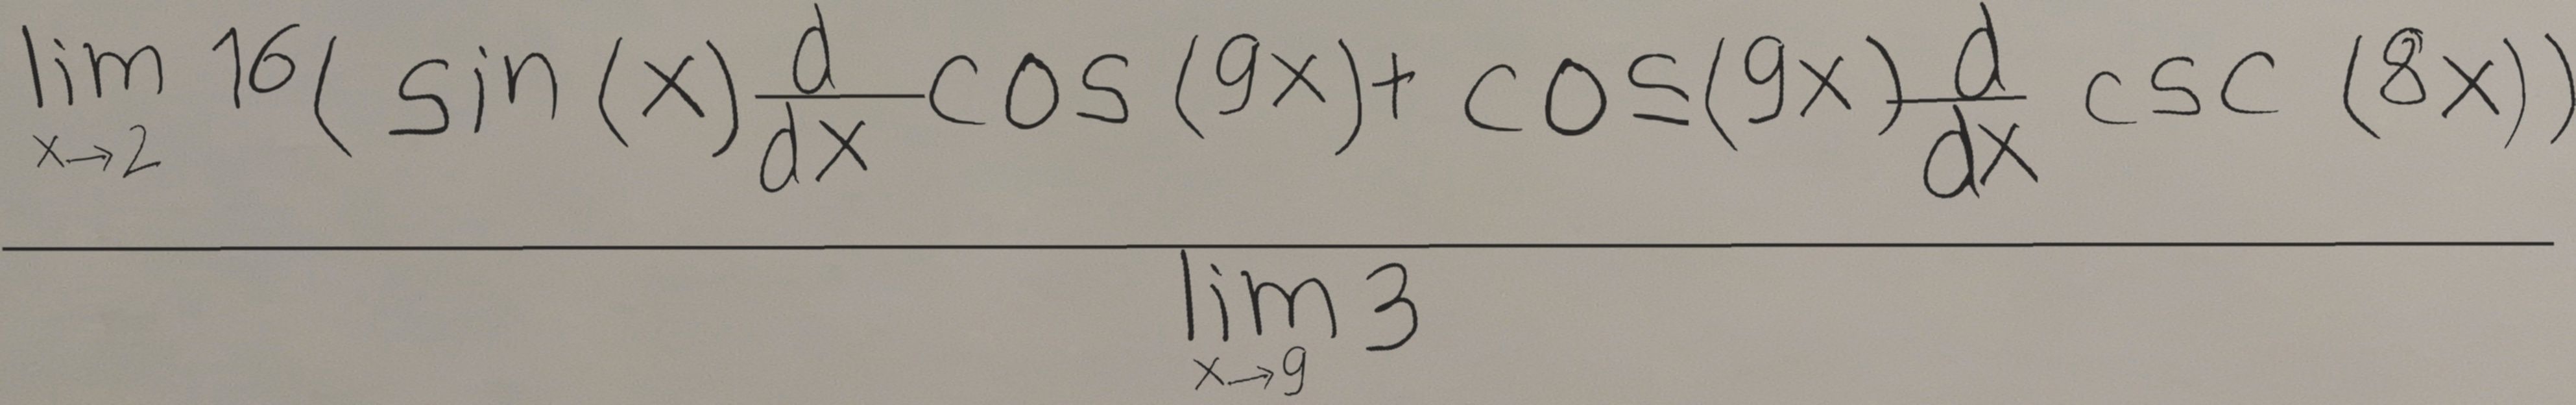 \frac{\lim_{x \to 2} 16(\sin(x)\frac{d}{dx}\cos(9x)+\cos(9x)\frac{d}{dx}\csc(8x))}{\lim_{x \to 9} 3}